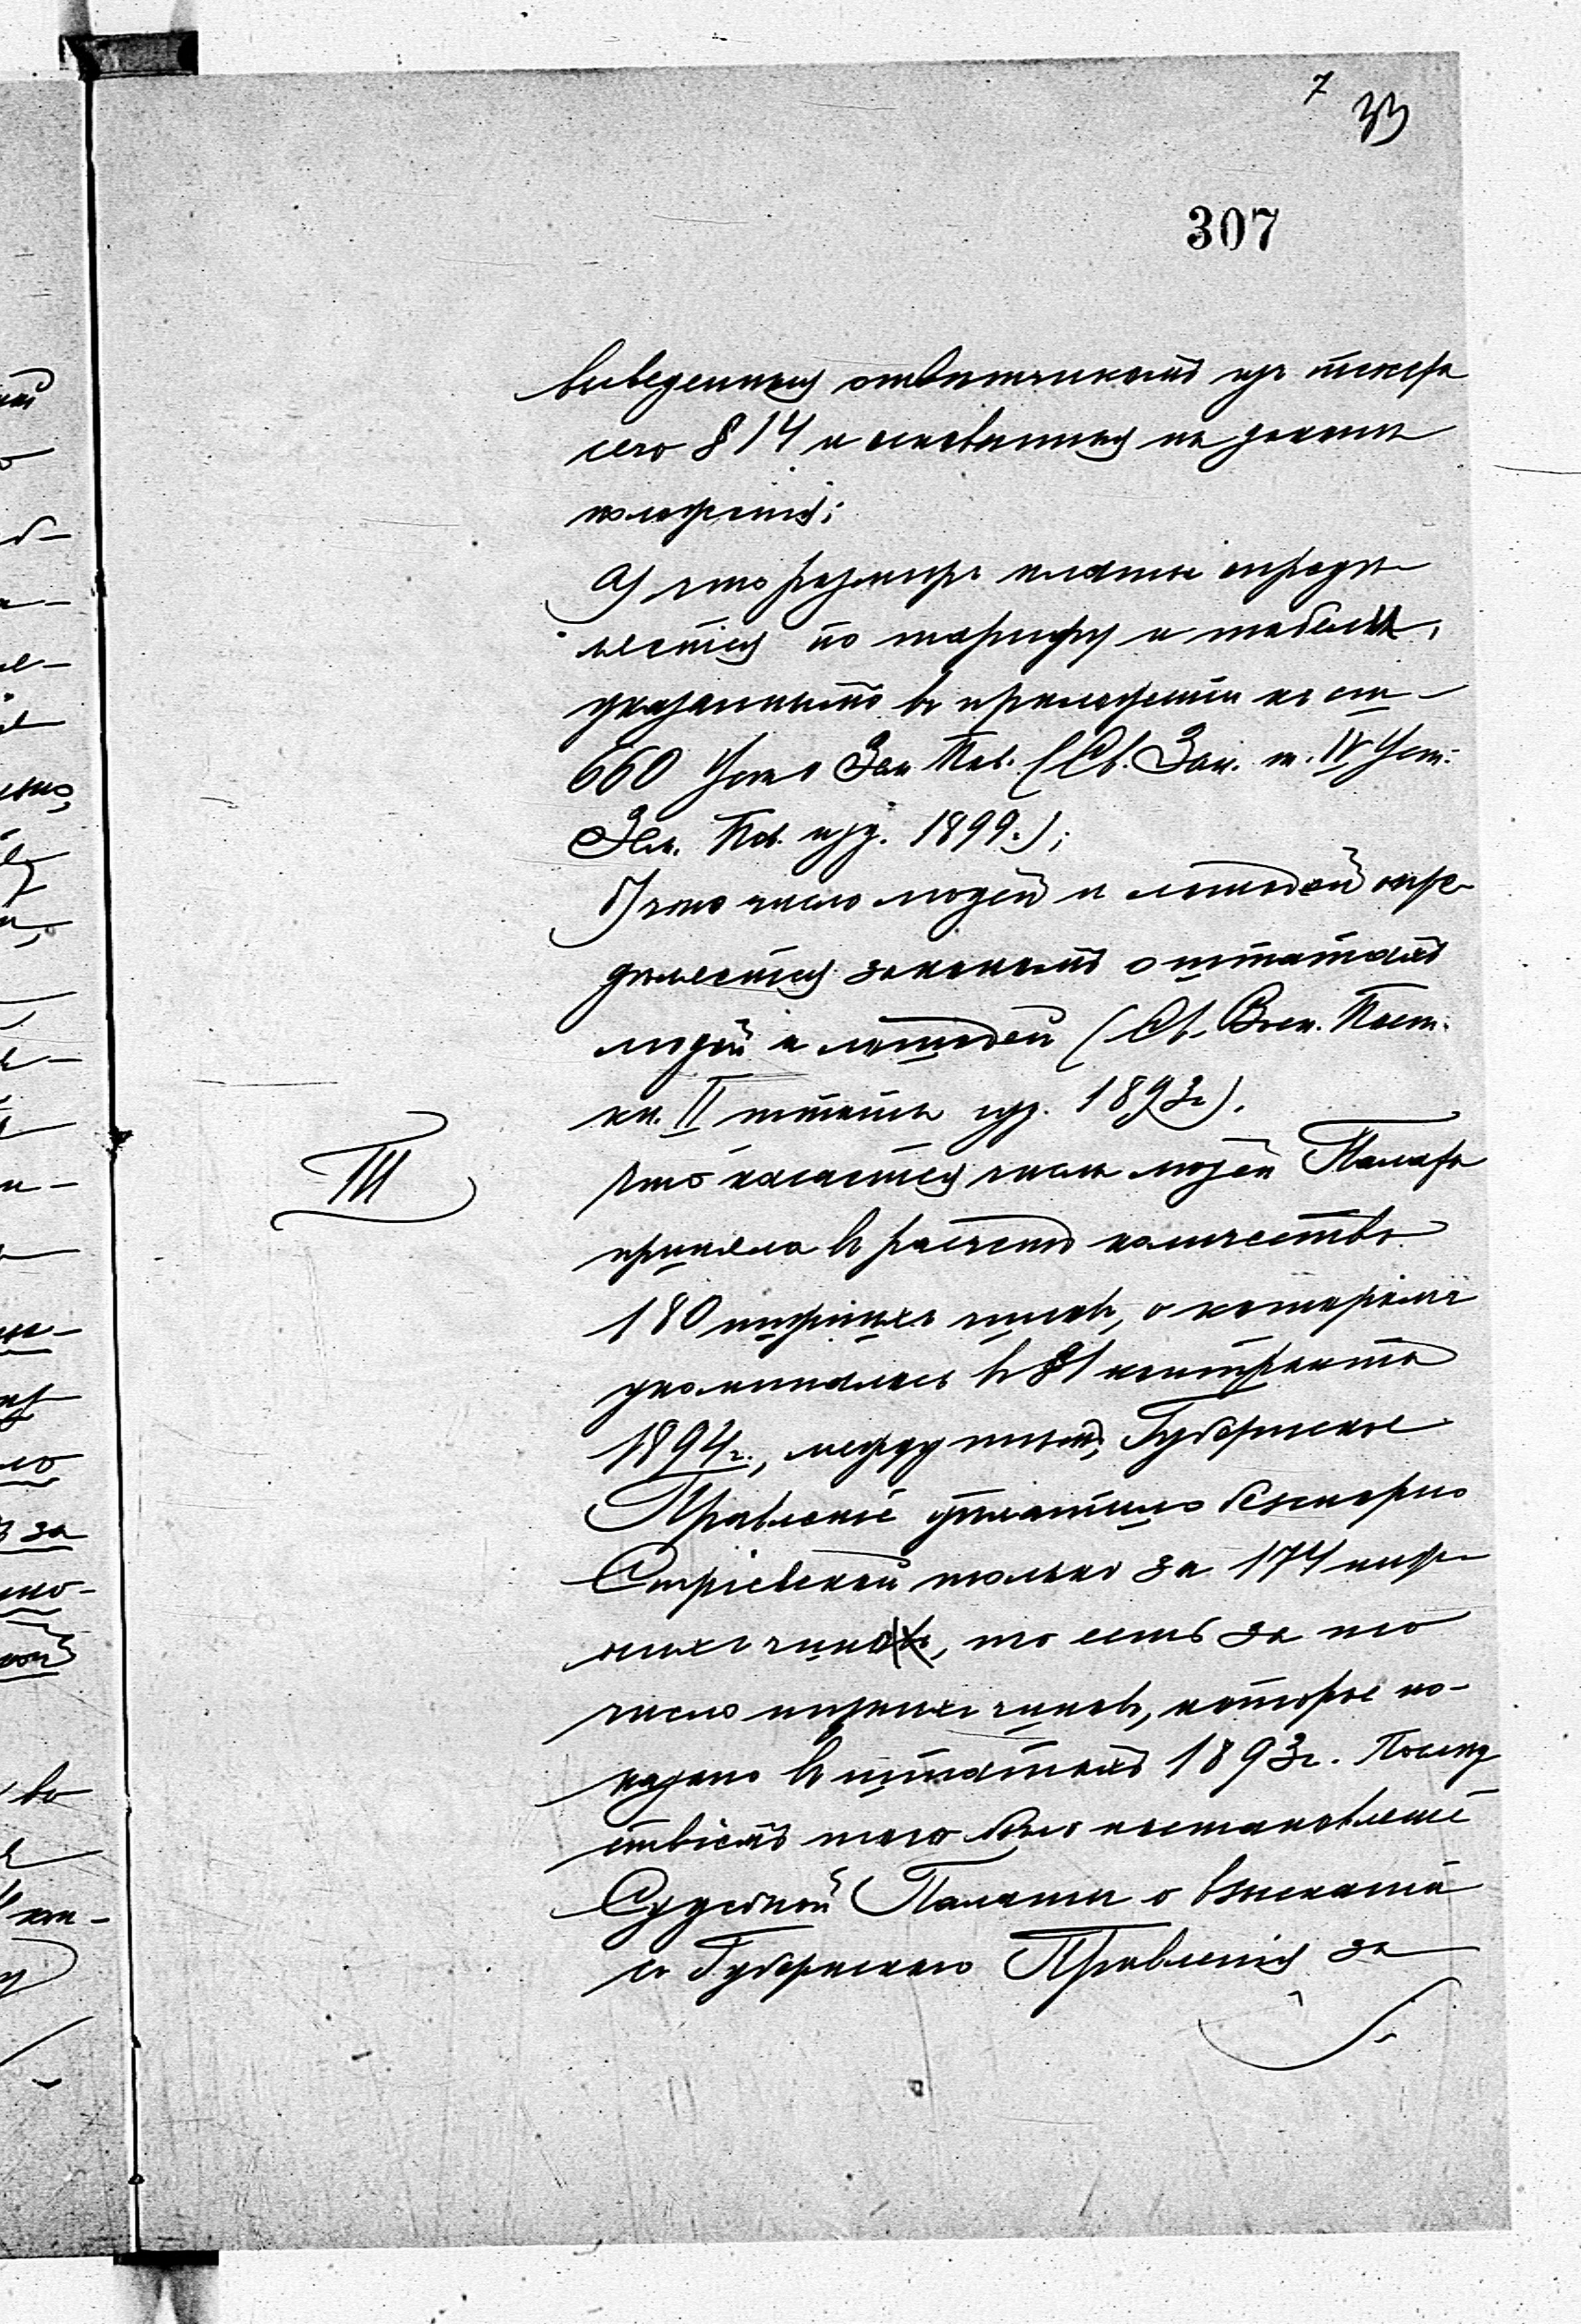 7
33
307
выведенныя ответчикомъ изъ текста
сего § 14 и основанныя на законе
положенія:
а) что размеръ платы опреде-
ляется по тарифу и табели,
указаннымъ въ приложеніи къ ст
660 Уст о Зем Пов. (Св. Зак. т. IV Уст.
Зем. Пов. изд. 1899г.);
б) что число людей и лошадей опре-
деляется закономъ о штатахъ
людей и лошадей (Св. Воен. Пост.
кн. II штаты изд. 1893г).
III
Что касается числа людей Палата
приняла въ расчетъ количество
180 нижнихъ чиновъ, о которомъ
упоминалось въ § 1 контракта
1894г., между темъ, Губернское
Правленіе платило
только за 174 ниж-
нихъ чиновъ, то есть за то
число нижнихъ чиновъ, которое по-
казано въ штатахъ 1893г. Послед
ствіемъ того было постановленіе
Судебной Палаты о взысканіи
съ Губернскаго Правленія за